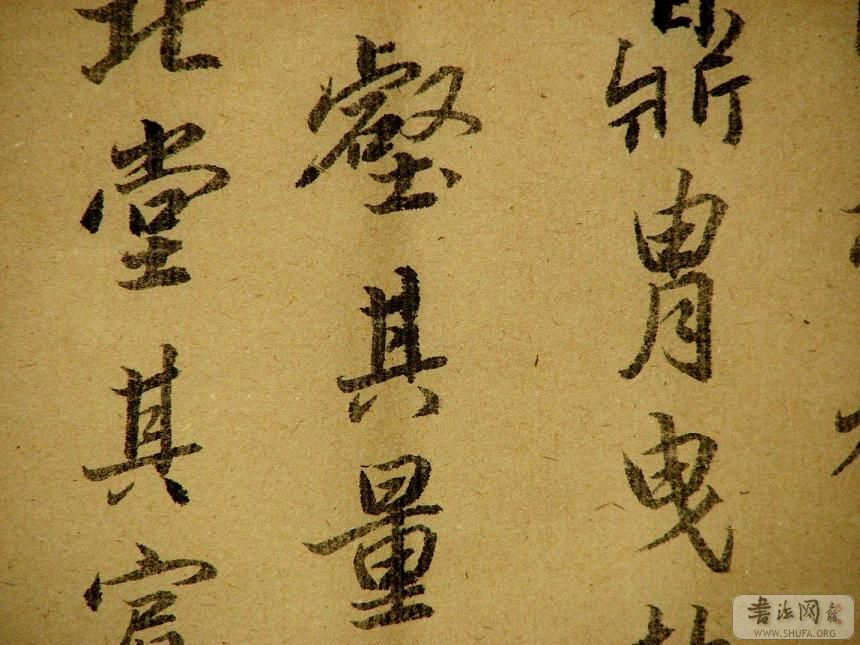 鼎胄曳
壑其量
北堂其
书法网
WWW.SHUFA.ORG